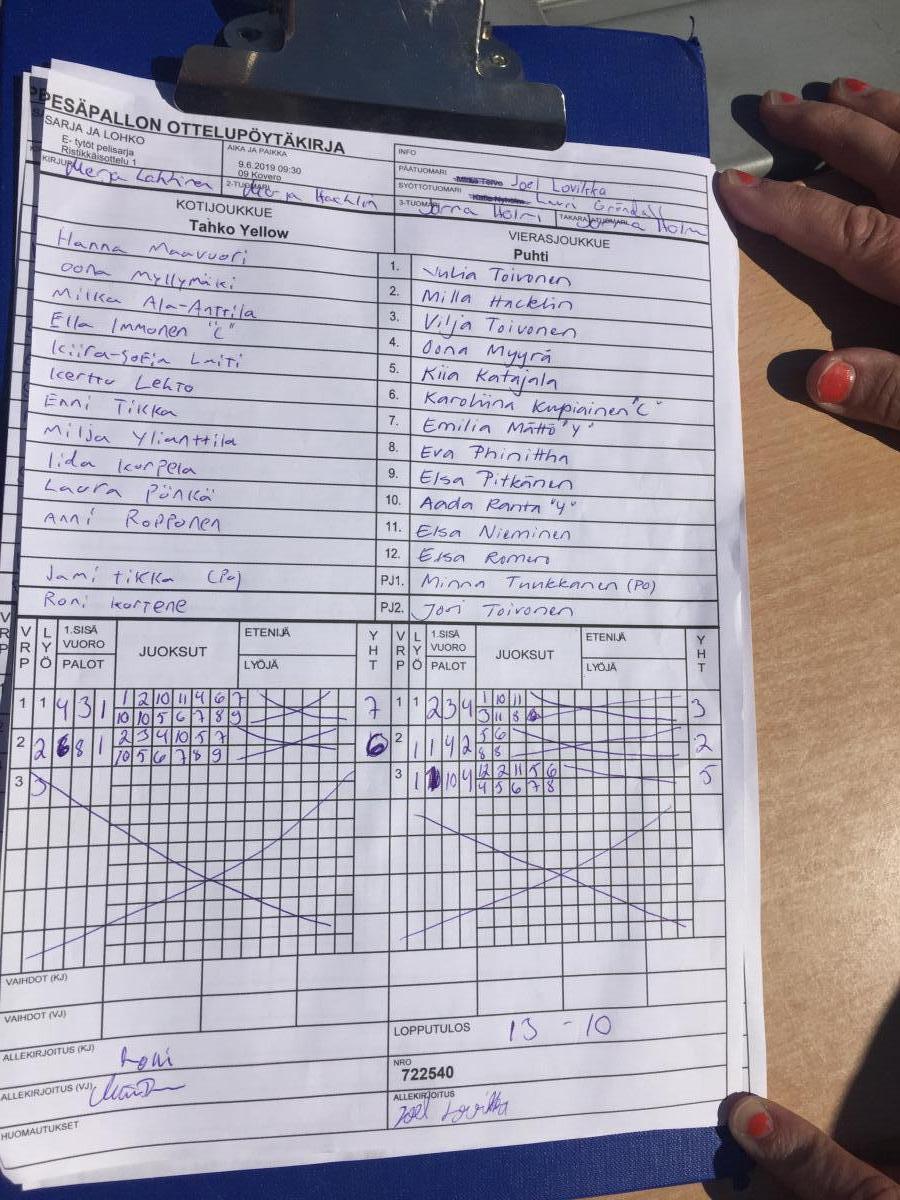 PESÄPALLON OTTELUPÖYTÄKIRJA
SARJA JA LOHKO
E- tytöt pelisarja
Ristikkäisottelu 1
AIKA JA PAIKKA
9.6.2019 09:30
09 Kovero
INFO
PÄÄTUOMARI Joel Lovikka
SYÖTTÖTUOMARI Lauri Gröndal
KIRJURI Merja Lahtinen
2-TUOMARI Merja Hacklin
3-TUOMARI Jorma Holm
TAKARAJATUOMARI Jorma Holm
KOTIJOUKKUE
Tahko Yellow
VIERASJOUKKUE
Puhti
Hanna Maavuori 1. Julia Toivonen
Oona Myllymäki 2. Milla Hacklin
Milka Ala-Anttila 3. Vilja Toivonen
Ella Immonen "C" 4. Oona Myyrä
Kiira-Sofia Laiti 5. Kiia Katajala
Kerttu Lehto 6. Karoliina Kupiainen "C"
Enni Tikka 7. Emilia Mättö "Y"
Milja Ylianttila 8. Eva Phinittha
Iida Korpela 9. Elsa Pitkänen
Laura Pönkä 10. Aada Ranta "Y"
Anni Ropponen 11. Elsa Nieminen
12. Elsa Romero
Jami Tikka (PO) PJ1. Minna Tuukkanen (PO)
Roni Kortene PJ2. Jori Toivonen
VRP LYÖ 1.SISÄ VUORO PALOT JUOKSUT ETENIJÄ LYÖJÄ YHT VRP LYÖ 1.SISÄ VUORO PALOT JUOKSUT ETENIJÄ LYÖJÄ YHT
1 1 4 3 1 1 2 10 11 4 6 7 7 1 1 2 3 4 1 10 11 3
10 10 5 6 7 8 9 3 11 8
2 2 6 8 1 2 3 4 10 5 7 6 2 1 1 4 2 5 6 2
10 5 6 7 8 9 8 8
3 3 3 1 10 4 12 2 11 5 6 5
4 5 6 7 8
VAIHDOT (KJ)
VAIHDOT (VJ)
LOPPUTULOS 13 - 10
ALLEKIRJOITUS (KJ)
NRO
722540
ALLEKIRJOITUS (VJ)
ALLEKIRJOITUS
Joel Lovikka
HUOMAUTUKSET